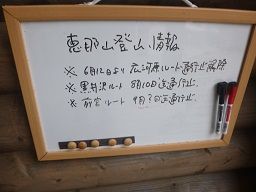 恵那山登山情報
※ 6月12日より 広河原ルート通行止解除
※ 黒井沢ルート 8月10日迄通行止.
※ 前宮ルート 9月?日迄通行止.